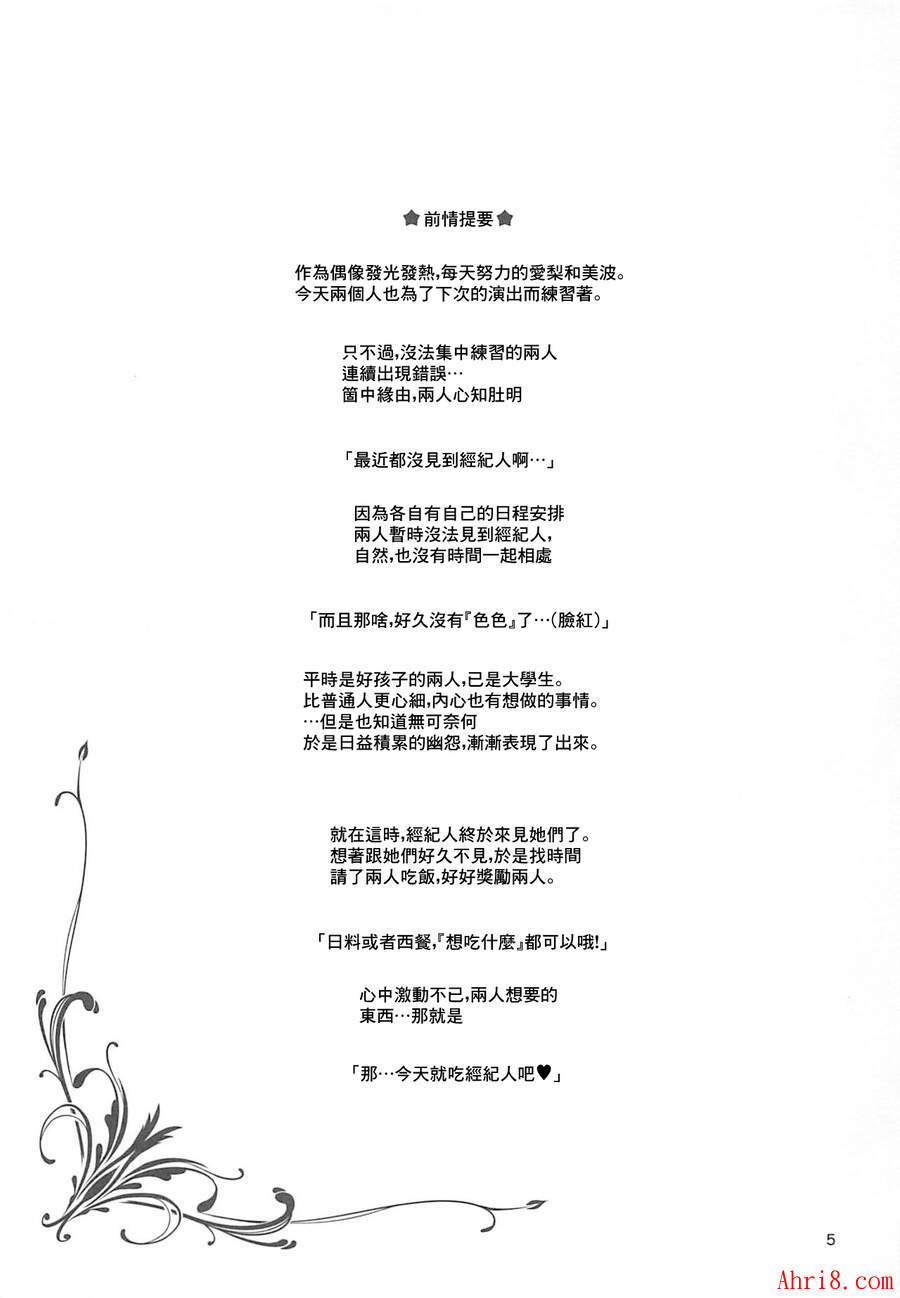 ★前情提要★
作為偶像發光發熱,每天努力的愛梨和美波。
今天兩個人也為了下次的演出而練習著。
只不過,沒法集中練習的兩人
連續出現錯誤…
箇中緣由,兩人心知肚明
「最近都沒見到經紀人啊…」
因為各自有自己的日程安排
兩人暫時沒法見到經紀人,
自然,也沒有時間一起相處
「而且那啥,好久沒有『色色』了…(臉紅)」
平時是好孩子的兩人,已是大學生。
比普通人更心細,內心也有想做的事情。
…但是也知道無可奈何
於是日益積累的幽怨,漸漸表現了出來。
就在這時,經紀人終於來見她們了。
想著跟她們好久不見,於是找時間
請了兩人吃飯,好好獎勵兩人。
「日料或者西餐,『想吃什麼』都可以哦!」
心中激動不已,兩人想要的
東西…那就是
「那…今天就吃經紀人吧♥」
5
Ahri8.com